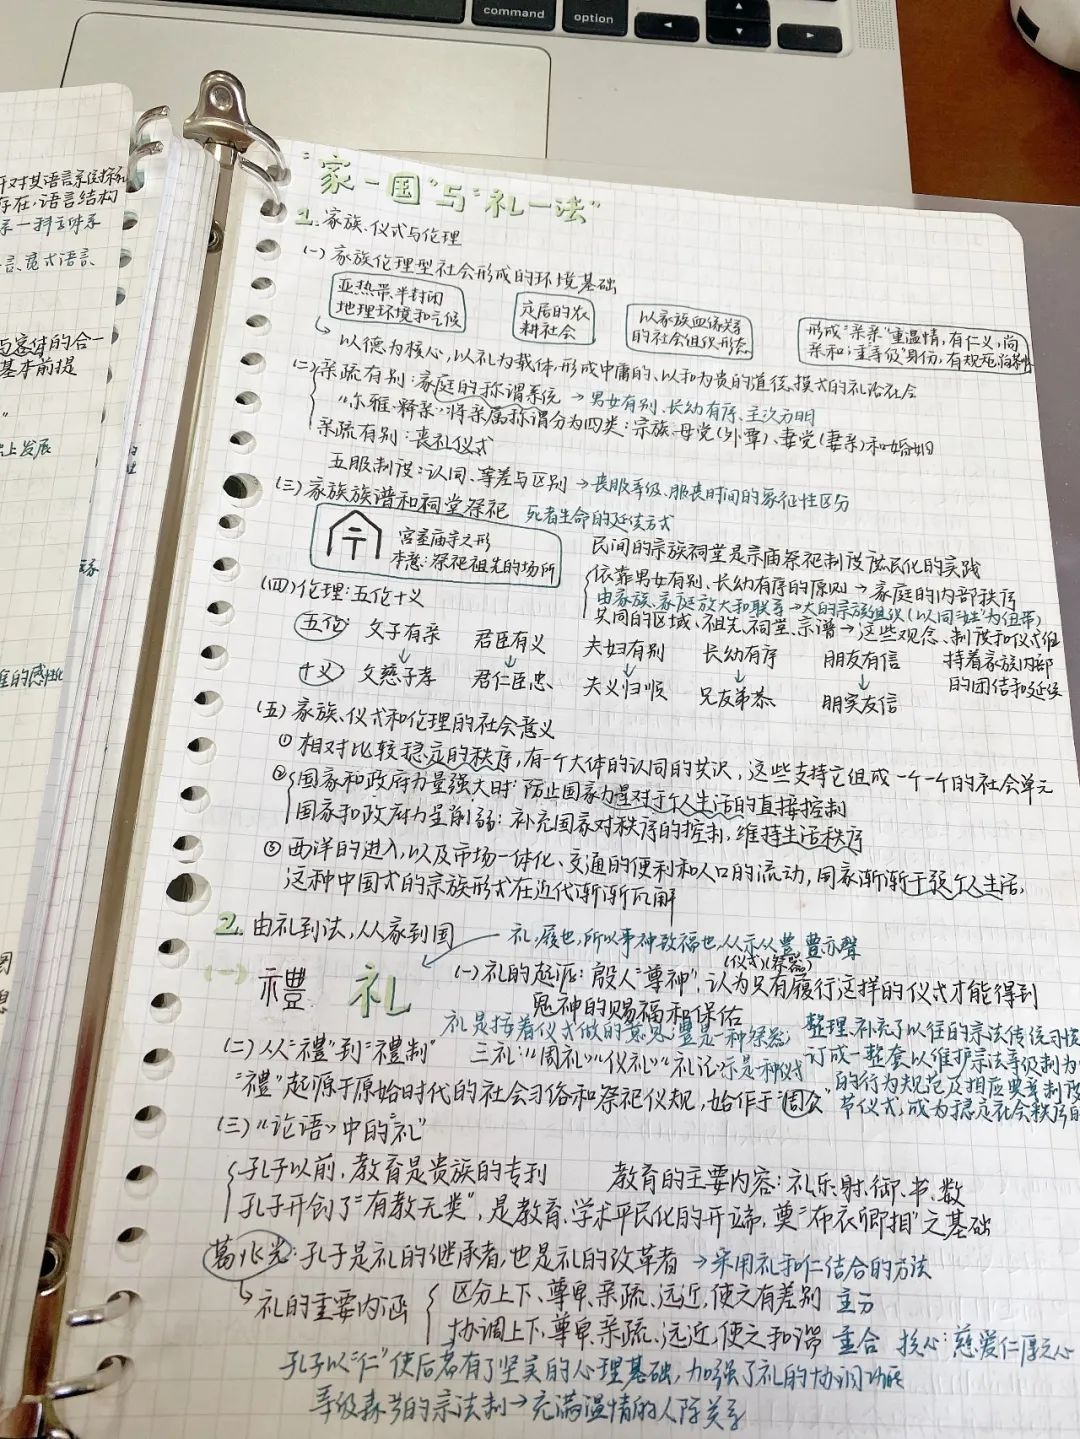 command
option
开对其语言系统探
存在·语言结构
与客体的合一
基本前提
上发展
"家-国"与"礼-法"
1. 家族、仪式与伦理
(一) 家族伦理型社会形成的环境基础
亚热带、半封闭
地理环境和气候
定居的农
耕社会
以家族血缘关系
的社会组织形态
形成"亲亲"重温情,有仁义,尚
亲和;重等级身份,有规范
以德为核心,以礼为载体,形成中庸的、以和为贵的道德模式的礼治社会
(二) 亲疏有别:家庭的称谓系统 → 男女有别、长幼有序、主次分明
"尔雅·释亲"将亲属称谓分为四类:宗族、母党(外亲)、妻党(妻亲)和婚姻
亲疏有别:丧礼仪式
五服制设:认同、等差与区别 → 丧服等级、服丧时间的象征性区分
(三) 家族族谱和祠堂祭祀 死者生命的延续方式
宫室庙宇之形
本意:祭祀祖先的场所
民间的宗族祠堂是宗庙祭祀制设庶民化的实践
依靠男女有别、长幼有序的原则 → 家庭的内部秩序
由家族、家庭放大和联系 → 大的宗族组织(以同"姓"为纽带)
共同的区域、祖先、祠堂、宗谱 → 这些观念、制度和仪式维
持着家族内部
的团结和延续
(四) 伦理:五伦十义
五伦 父子有亲 君臣有义 夫妇有别 长幼有序 朋友有信
十义 父慈子孝 君仁臣忠 夫义妇顺 兄友弟恭 朋实友信
(五) 家族、仪式和伦理的社会意义
① 相对比较稳定的秩序,有一个大体的认同的共识,这些支持它组成一个一个的社会单元
② 国家和政府力量强大时:防止国家力量对于个人生活的直接控制
国家和政府力量削弱:补充国家对秩序的控制,维持生活秩序
③ 西洋的进入,以及市场一体化、交通的便利和人口的流动,国家渐渐干预个人生活,
这种中国式的宗族形式在近代渐渐瓦解
2. 由礼到法,从家到国
礼,履也,所以事神致福也,从示从豊,豊亦聲
(仪式)(祭器)
(一) 禮 礼
(一) 礼的起源:殷人"尊神",认为只有履行这样的仪式才能得到
鬼神的赐福和保佑
礼是接着仪式做的意思;豊是一种祭器;
示是一种仪式
(二) 从"禮"到"禮制" 三礼:"周礼""仪礼""礼记"
整理、补充了以往的宗法传统习惯
订成一整套以维护宗法等级制为
的行为规范及相应典章制度
节仪式,成为稳定社会秩序的
"禮"起源于原始时代的社会习俗和祭祀仪规,始作于"周公"
(三) "论语"中的"礼"
孔子以前,教育是贵族的专利 教育的主要内容:礼、乐、射、御、书、数
孔子开创了"有教无类",是教育、学术平民化的开端,奠"布衣卿相"之基础
葛兆光:孔子是礼的继承者,也是礼的改革者 → 采用礼和仁结合的方法
礼的重要内涵
区分上下、尊卑、亲疏、远近,使之有差别 主分
协调上下、尊卑、亲疏、远近,使之和谐 重合 核心:慈爱仁厚之心
孔子以"仁"使后者有了坚实的心理基础,加强了礼的协调功能
等级森严的宗法制 → 充满温情的人际关系